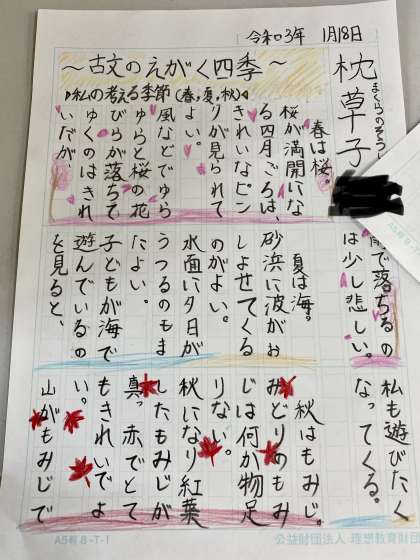 令和3年 1月18日
枕草子
まくらのそうし
～古文のえがく四季～
私の考える季節(春,夏,秋)
春は桜。
桜が満開にな
る四月ごろは、
きれいなピン
クが見られて
よい。
風などでゆら
ゆらと桜の花
びらが落ちて
ゆくのはきれ
いだが
雨で落ちるの
は少し悲しい。
夏は海。
砂浜に波がお
しよせてくる
のがよい。
水面に夕日が
うつるのもま
たよい。
子どもが海で
遊んでいるの
を見ると、
私も遊びたく
なってくる。
秋はもみじ。
みどりのもみ
じは何か物足
りない。
秋になり紅葉
したもみじが
真っ赤でとて
もきれいでよ
い。
山がもみじで
A5判 8-T-1
公益財団法人 理想教育財団